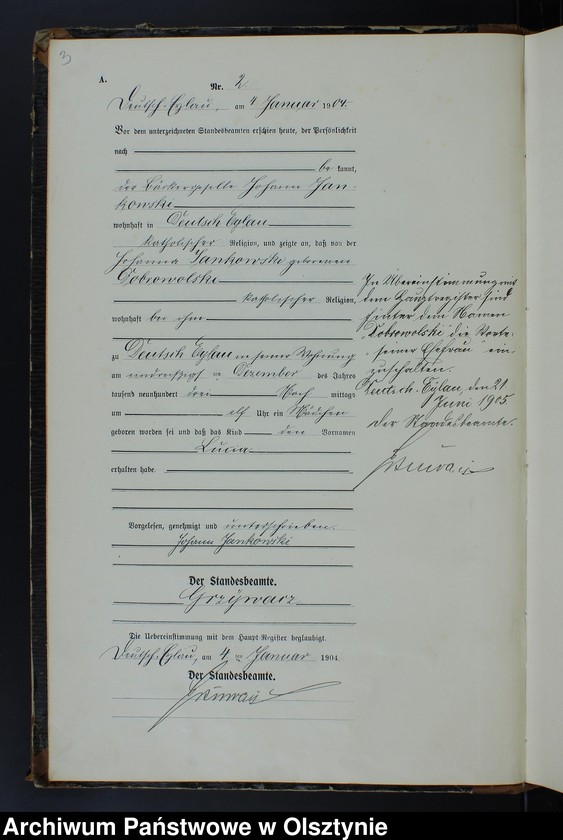 3
A.
Nr. 2
Deutsch-Eylau, am 4 Januar 1904.
Vor dem unterzeichneten Standesbeamten erschien heute, der Persönlichkeit
nach
be kannt,
der Bäckergeselle Johann Jan-
kowski
wohnhaft in Deutsch Eylau
katholischer Religion, und zeigte an, daß von der
Johanna Jankowski geborenen
Dobrowolski
katholischer Religion,
wohnhaft bei ihm
zu Deutsch Eylau in seiner Wohnung
am Dezember des Jahres
tausend neunhundert drei Nach mittags
um elf Uhr ein Mädchen
geboren worden sei und daß das Kind den Vornamen
Lucia
erhalten habe.
Vorgelesen, genehmigt und unterschrieben.
Johann Jankowski
Der Standesbeamte.
Grzywacz
Die Uebereinstimmung mit dem Haupt-Register beglaubigt.
Deutsch-Eylau, am 4 ten Januar 1904.
Der Standesbeamte.
In Übereinstimmung mit
dem Hauptregister sind
hinter dem Namen
"Dobrowolski" die Worte
"seiner Ehefrau" ein-
zuschalten.
Deutsch-Eylau, den 21
Juni 1905
Der Standesbeamte.
Archiwum Państwowe w Olsztynie